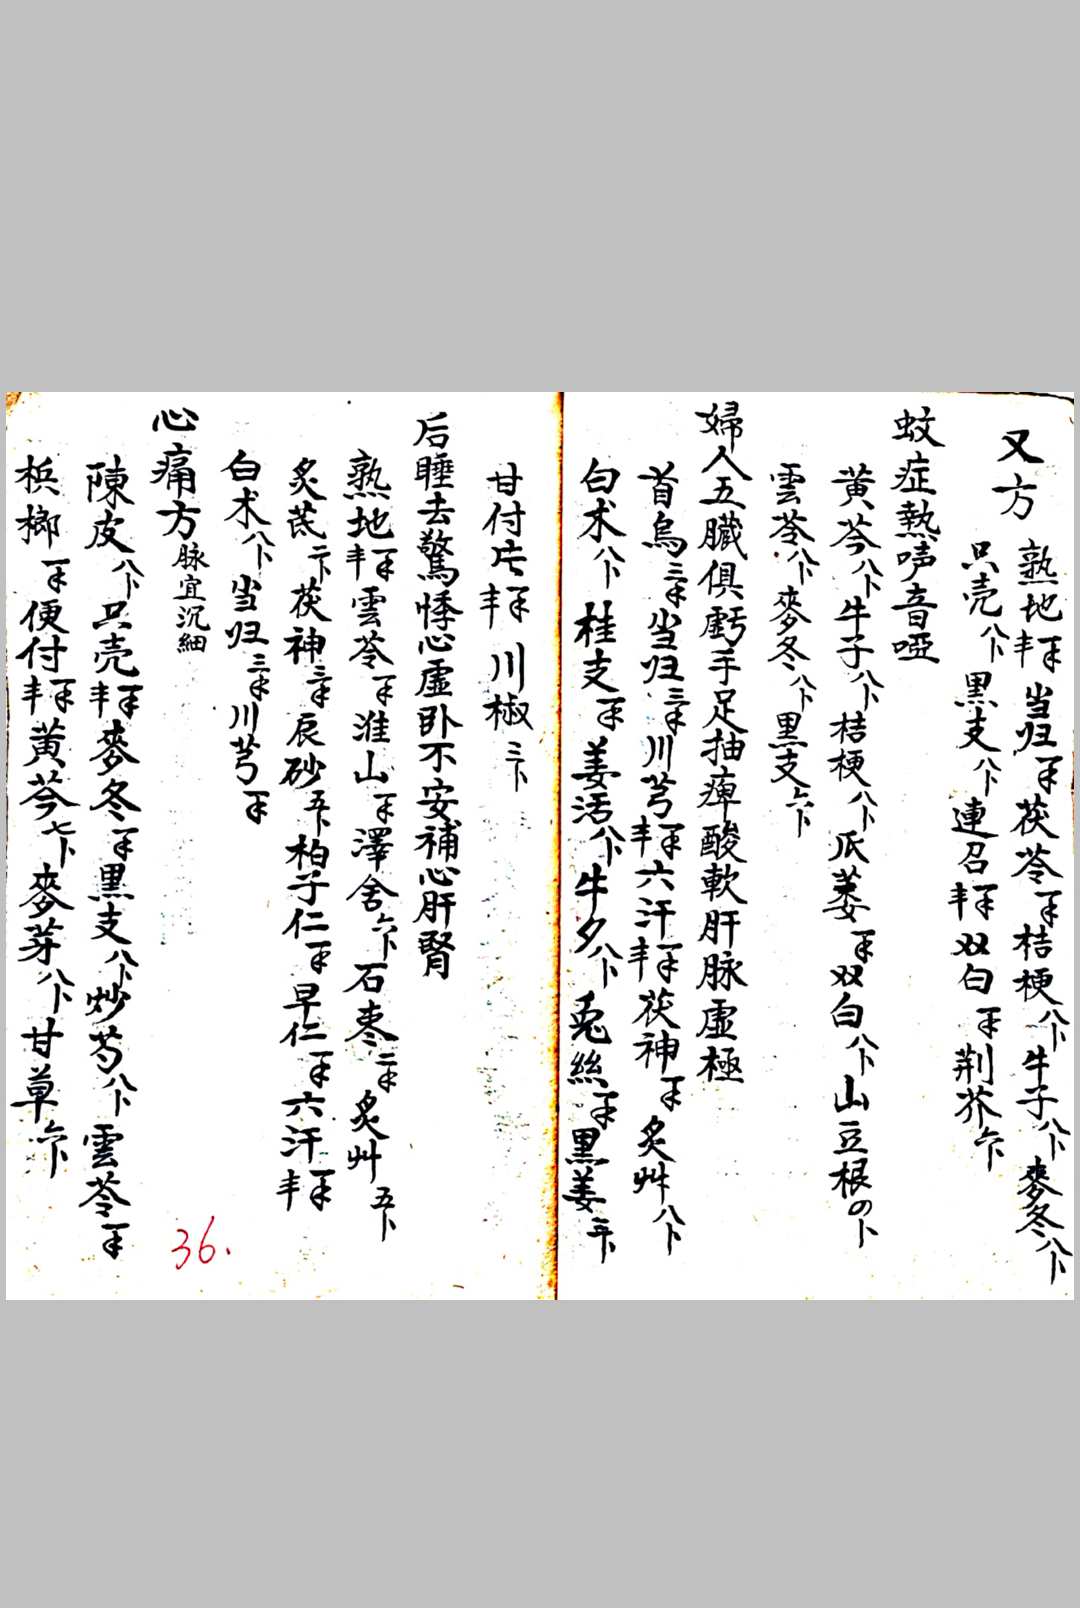 又方
熟地 当归 茯苓 桔梗八卜牛子八卜麥冬八卜
只壳八卜黑支八卜連召 双白 荆芥六卜
蚊症熱声音啞
黄芩八卜牛子八卜桔梗八卜瓜蒌 双白八卜山豆根の卜
雲苓八卜麥冬八卜黑支六卜
婦人五臟俱虧手足抽痺酸軟肝脉虛極
首烏 当归 川芎 六汗 茯神 炙艸八卜
白术八卜桂支 姜活八卜牛夕八卜兎絲 黑姜
甘付片 川椒三卜
后睡去驚悸心虛卧不安補心肝腎
熟地 雲苓 淮山 澤舍六卜石枣 炙艸五卜
炙芪 茯神 辰砂五卜柏子仁 早仁 六汗
白术八卜当归 川芎
心痛方 脉宜沉細
陳皮八卜只壳 麥冬 黑支八卜炒芍八卜雲苓
梹榔 便付 黄芩七卜麥芽八卜甘草六卜
36.